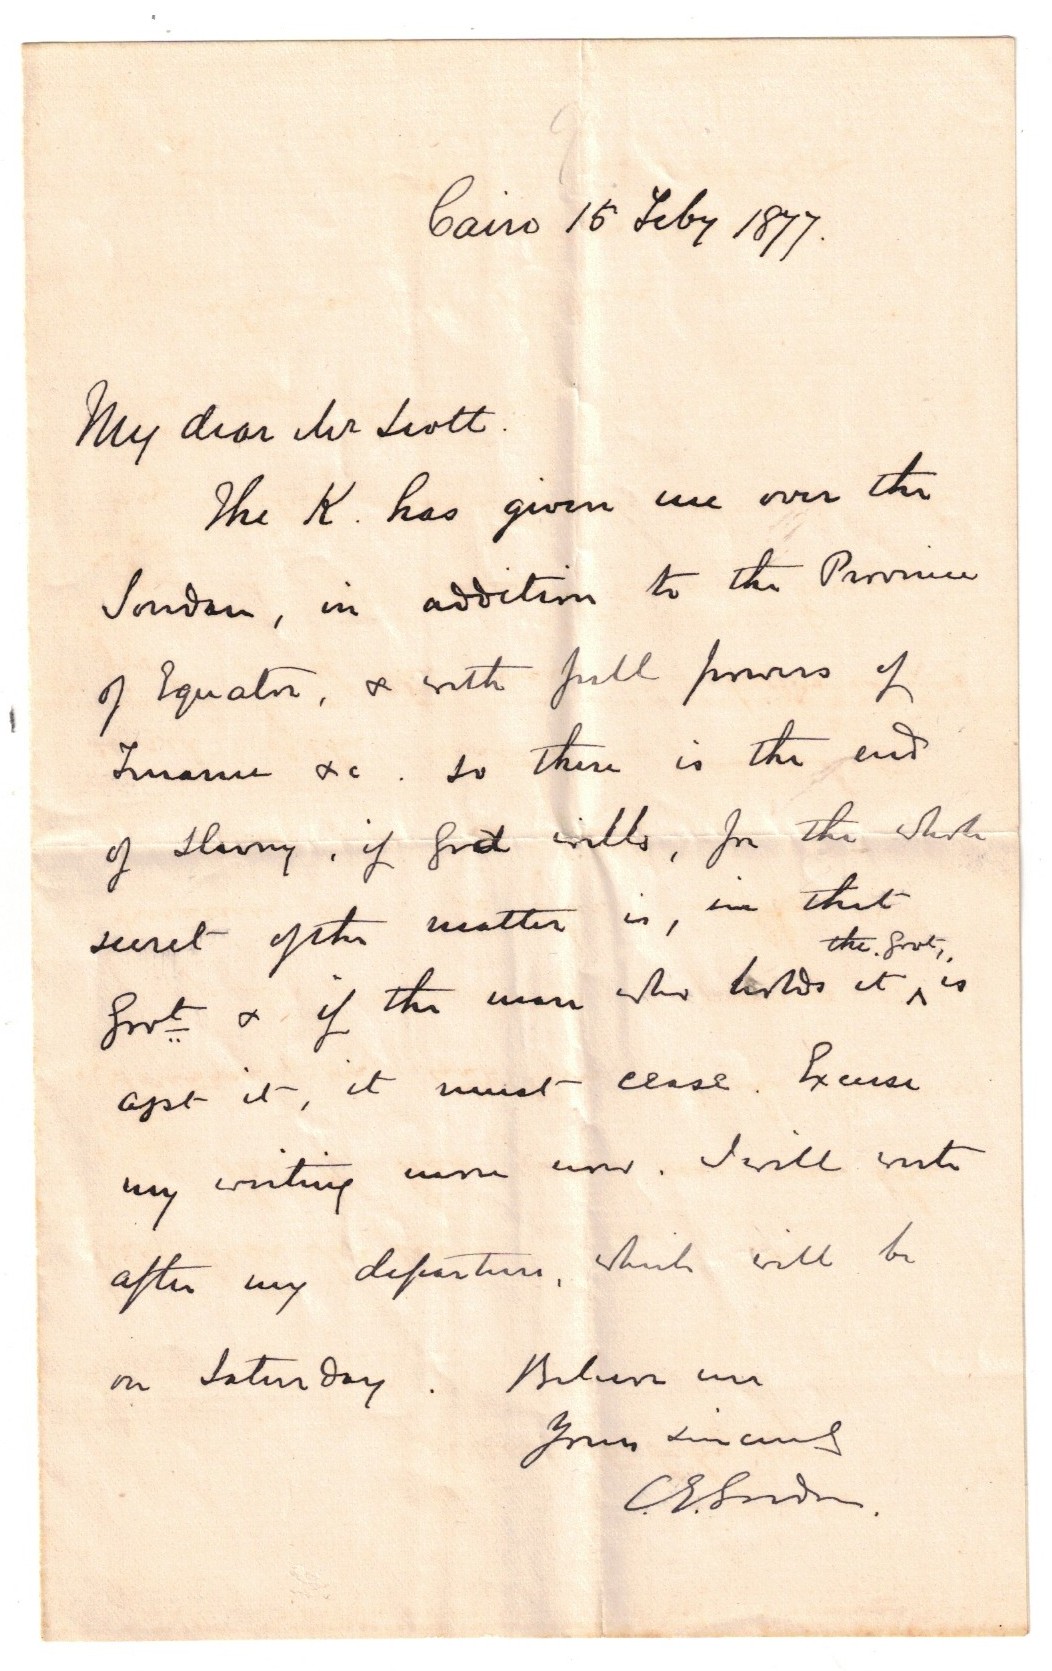 Cairo 15 Feby 1877.
My dear Mr Scott.
The K. has given me over the
Soudan, in addition to the Province
of Equator, & with full powers of
Finance &c. so there is the end
of slavery, if God wills, for the whole
secret of the matter is, in that
the Govt,
Govt & if the man who holds it ^ is
agst it, it must cease. Excuse
my writing more now. I will write
after my departure, which will be
on Saturday. Believe me
Yours sincerely
C.E. Gordon.